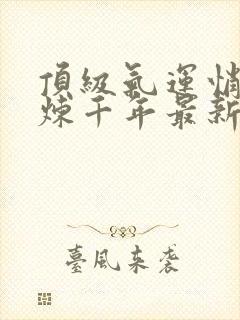 頂級氣運悄
煉千年最新
臺風來襲